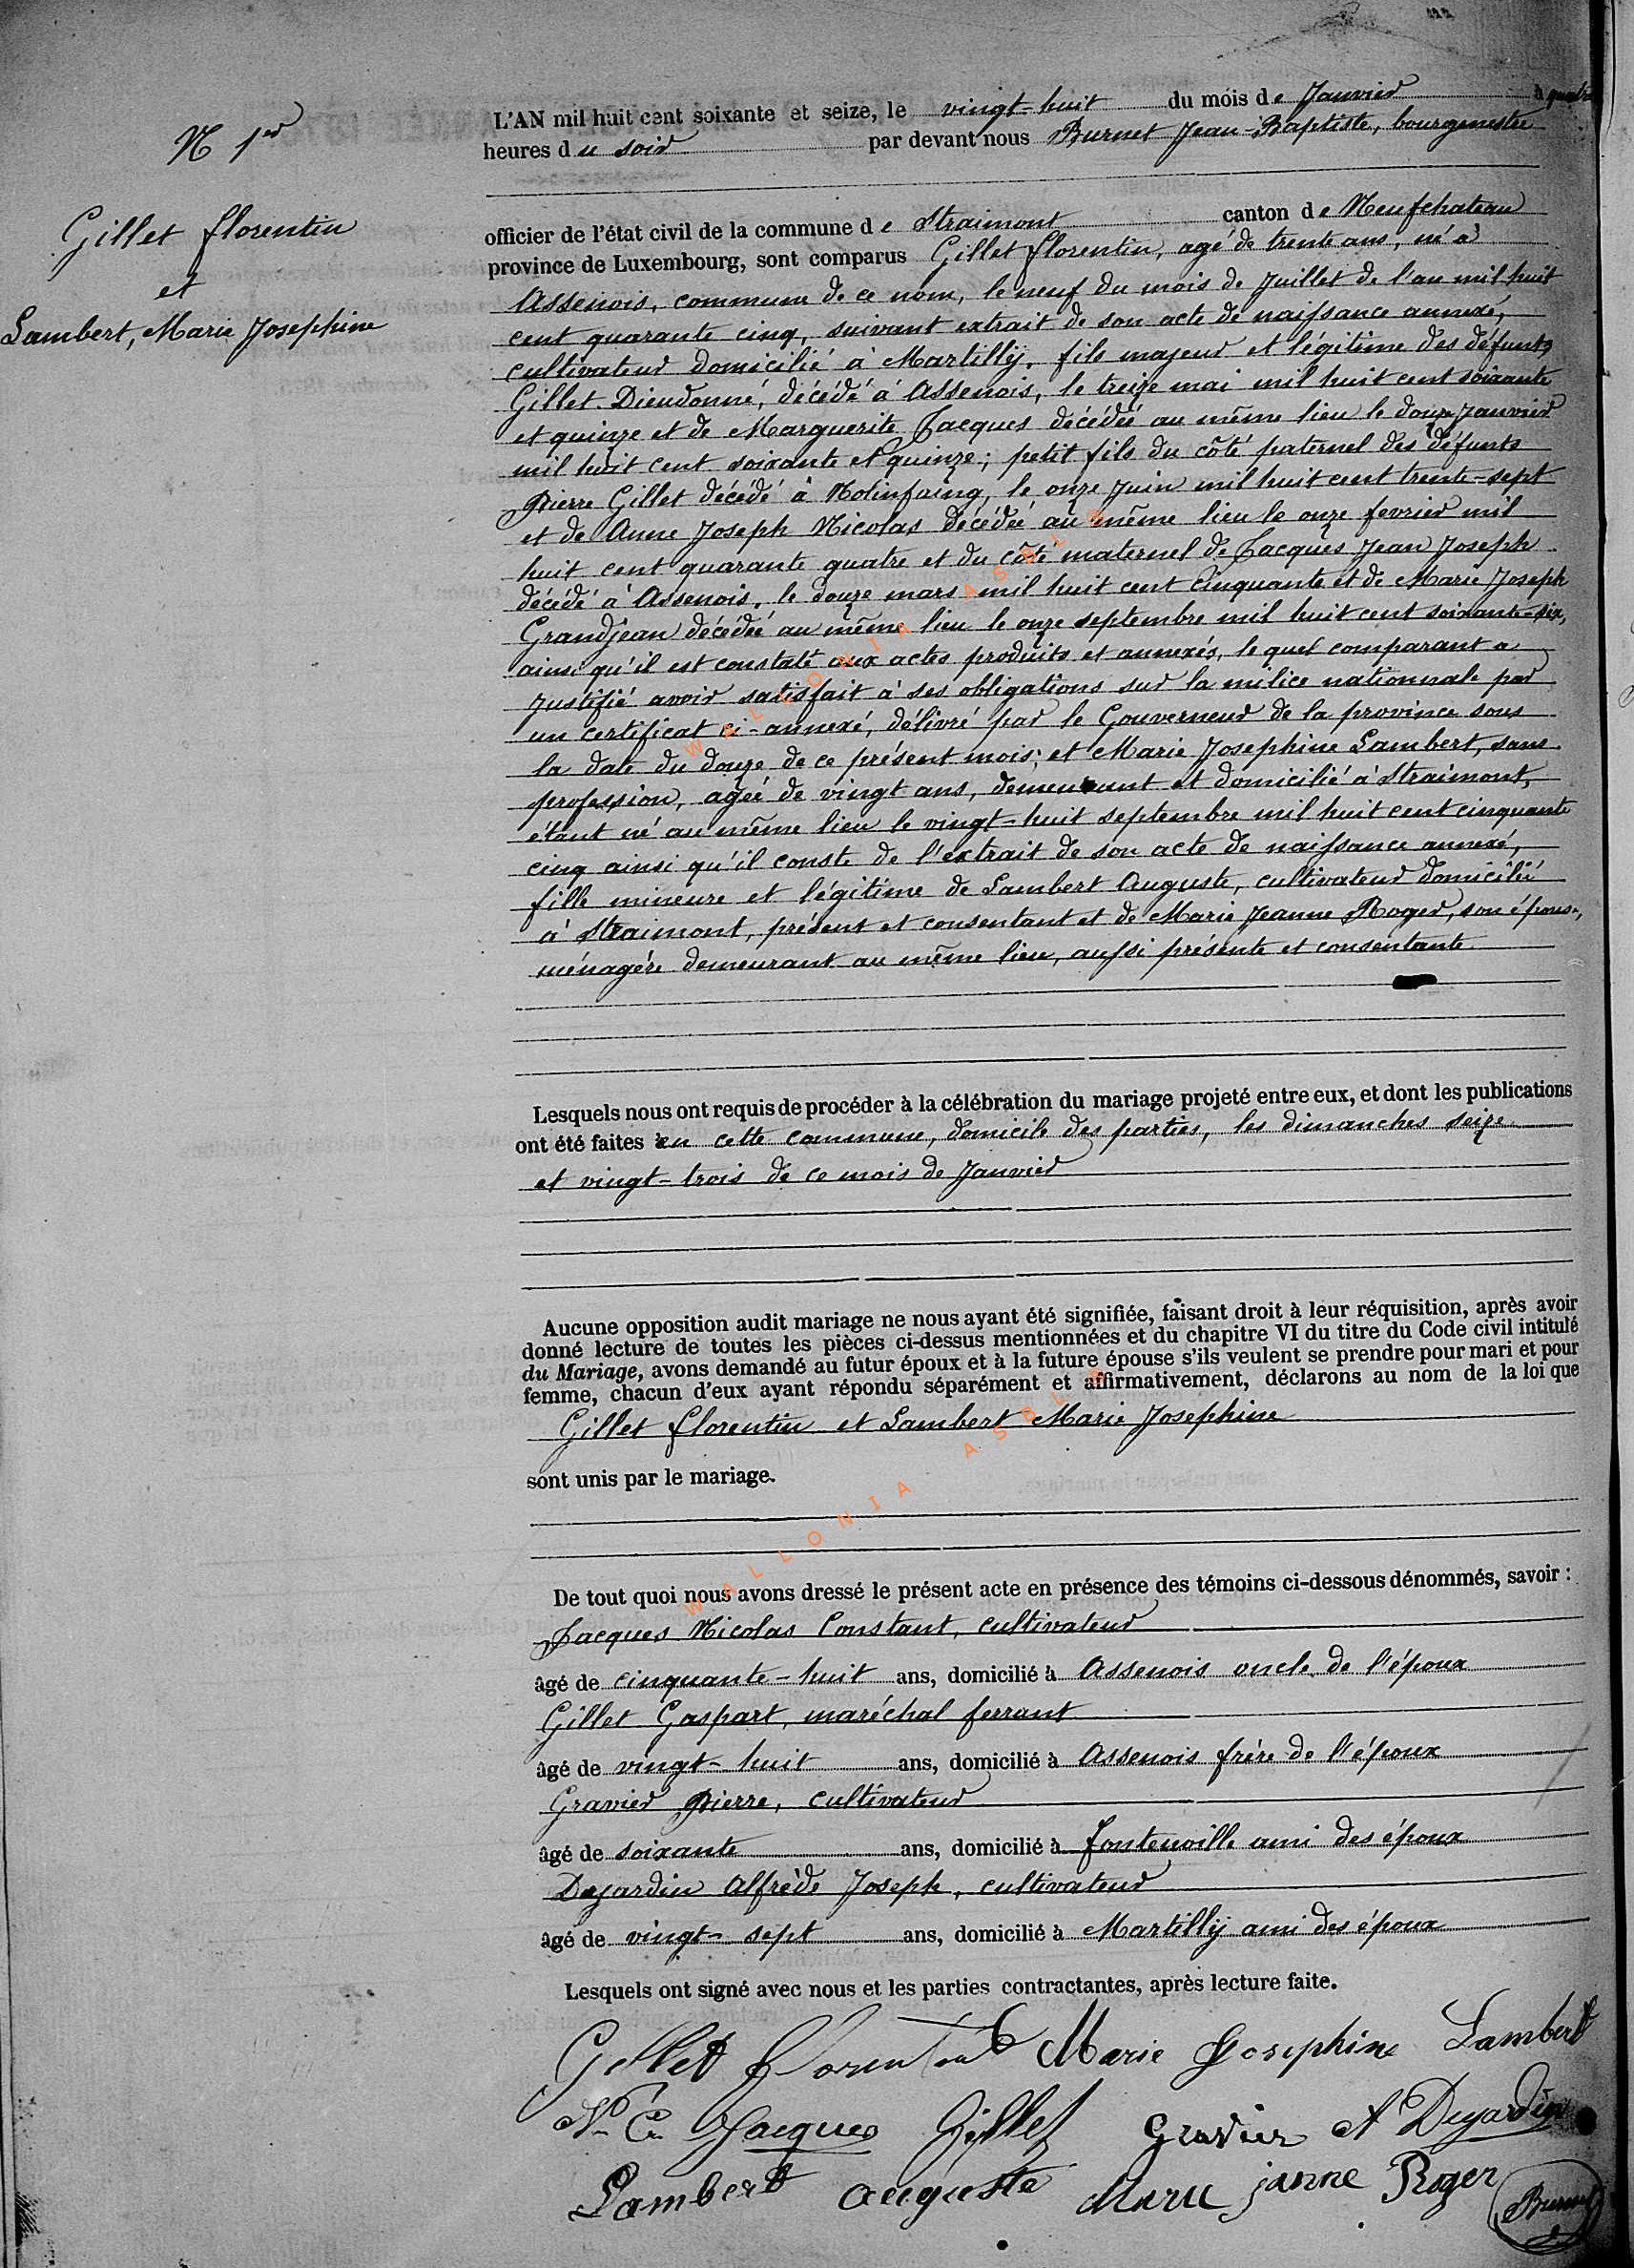 N 1er
Gillet Florentin
et
Lambert, Marie Josephine
L'AN mil huit cent soixante et seize, le vingt-huit du mois de Janvier à quatre
heures du soir par devant nous Burnet Jean-Baptiste, bourgmestre
officier de l'état civil de la commune de Straimont canton de Neufchateau
province de Luxembourg, sont comparus Gillet Florentin, agé de trente ans, né à
Assenois, commune de ce nom, le neuf du mois de Juillet de l'an mil huit
cent quarante cinq, suivant extrait de son acte de naissance annexé,
cultivateur domicilié à Martilly, fils majeur et légitime des défunts
Gillet Dieudonné, décédé à Assenois, le treize mai mil huit cent soixante
et quinze et de Marguerite Jacques décédée au même lieu le douze Janvier
mil huit cent soixante et quinze; petit fils du côté paternel des défunts
Pierre Gillet décédé à Molinfaing, le onze Juin mil huit cent trente-sept
et de Anne Joseph Nicolas décédée au même lieu le onze fevrier mil
huit cent quarante quatre et du côté maternel de Jacques Jean Joseph
décédé à Assenois, le douze mars mil huit cent cinquante et de Marie Joseph
Grandjean décédée au même lieu le onze septembre mil huit cent soixante-six,
ainsi qu'il est constaté aux actes produits et annexés, le quel comparant a
justifié avoir satisfait à ses obligations sur la milice nationnale par
un certificat ci-annexé, délivré par le Gouverneur de la province sous
la date du douze de ce présent mois; et Marie Josephine Lambert, sans
profession, agée de vingt ans, demeurant et domicilié à Straimont,
étant né au même lieu le vingt-huit septembre mil huit cent cinquante
cinq ainsi qu'il conste de l'extrait de son acte de naissance annexé,
fille mineure et légitime de Lambert Auguste, cultivateur domicilié
à Straimont, présent et consentant et de Marie Jeanne Roger, son épouse,
ménagère demeurant au même lieu, aussi présente et consentante
Lesquels nous ont requis de procéder à la célébration du mariage projeté entre eux, et dont les publications
ont été faites en cette commune, domicile des parties, les dimanches seize
et vingt-trois de ce mois de Janvier
Aucune opposition audit mariage ne nous ayant été signifiée, faisant droit à leur réquisition, après avoir
donné lecture de toutes les pièces ci-dessus mentionnées et du chapitre VI du titre du Code civil intitulé
du Mariage, avons demandé au futur époux et à la future épouse s'ils veulent se prendre pour mari et pour
femme, chacun d'eux ayant répondu séparément et affirmativement, déclarons au nom de la loi que
Gillet Florentin et Lambert Marie Josephine
sont unis par le mariage.
De tout quoi nous avons dressé le présent acte en présence des témoins ci-dessous dénommés, savoir :
Jacques Nicolas Constant, cultivateur
âgé de cinquante-huit ans, domicilié à Assenois oncle de l'époux
Gillet Gaspart, maréchal ferrant
âgé de vingt-huit ans, domicilié à Assenois frère de l'époux
Gravier Pierre, cultivateur
âgé de soixante ans, domicilié à Fontenoille ami des époux
Dujardin Alfrède Joseph, cultivateur
âgé de vingt-sept ans, domicilié à Martilly ami des époux
Lesquels ont signé avec nous et les parties contractantes, après lecture faite.
Gillet Florentin Marie Josephine Lambert
N. C. Jacques Gillet Gravier A Dujardin
Lambert auguste Marie janne Roger Burnet
WALLONIA ASBL
WALLONIA ASBL